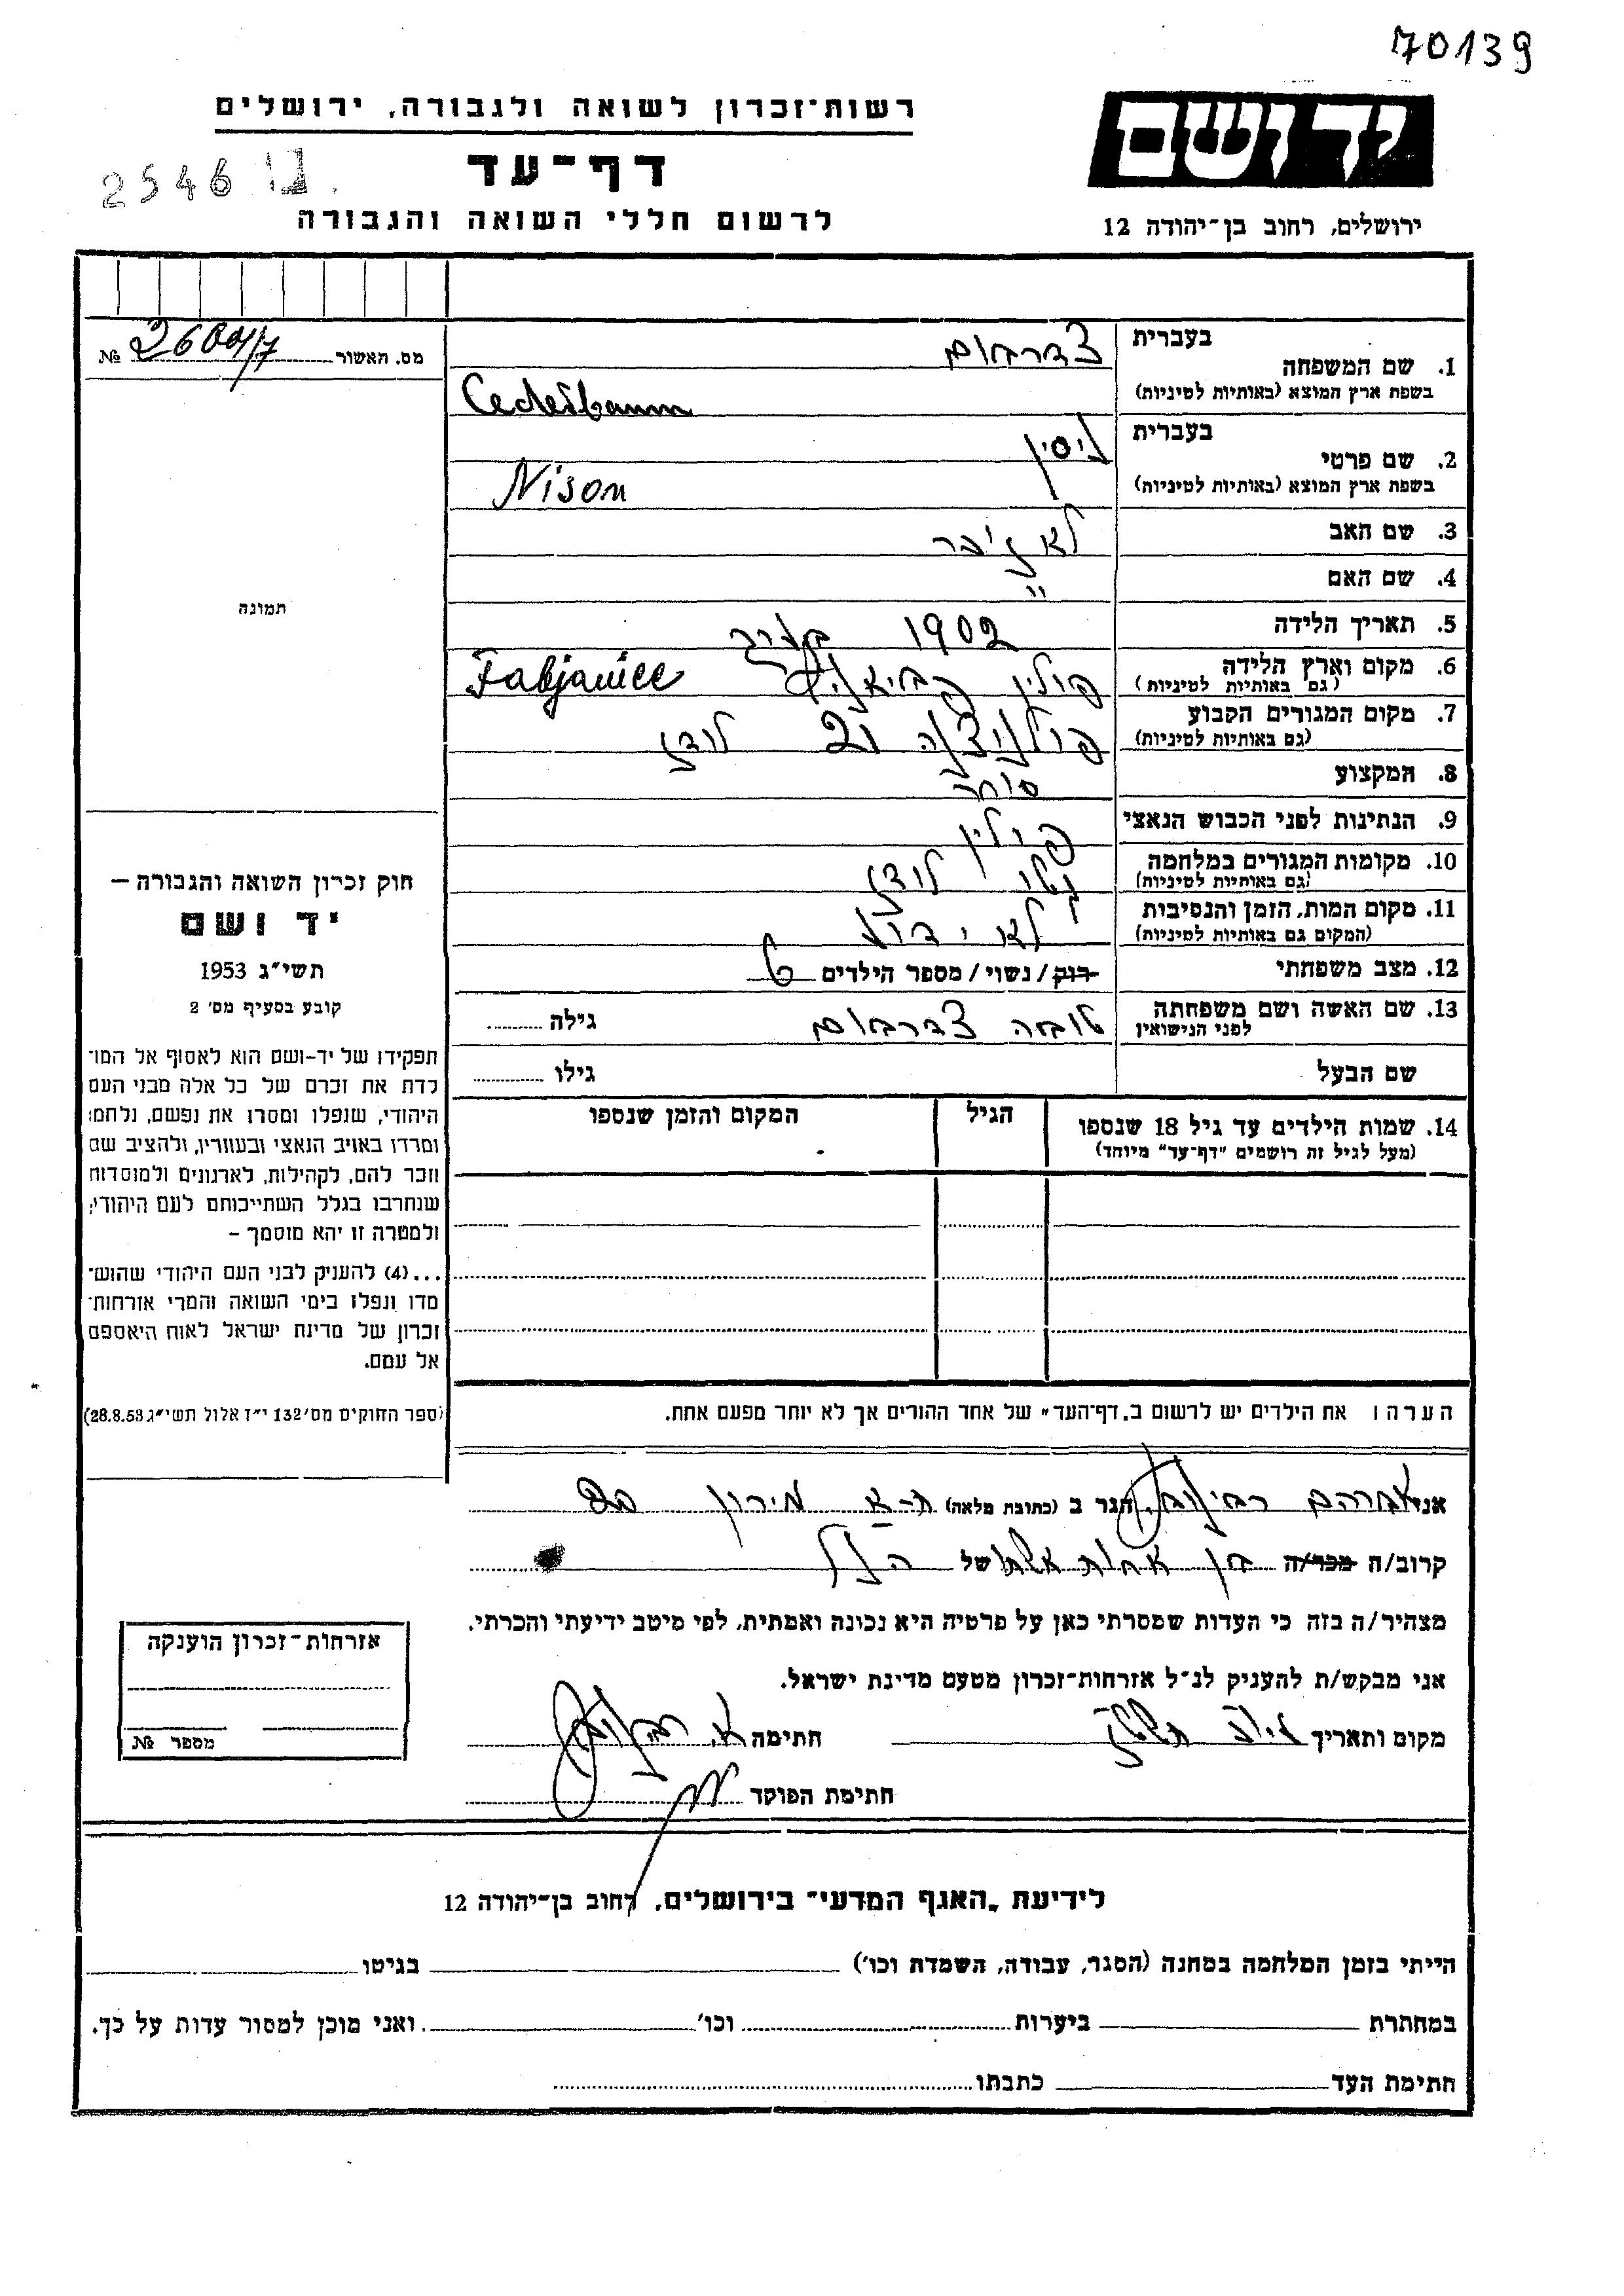 70139
יד ושם
ירושלים, רחוב בן־יהודה 12
רשות־זכרון לשואה ולגבורה, ירושלים
דף־עד
לרשום חללי השואה והגבורה
2546
מס. האשור № 26001/7
תמונה
בעברית צדרבוים
1. שם המשפחה
בשפת ארץ המוצא (באותיות לטיניות) Cederbaum
בעברית ניסין
2. שם פרטי
בשפת ארץ המוצא (באותיות לטיניות) Nison
3. שם האב
4. שם האם
5. תאריך הלידה 1902 בערך
6. מקום וארץ הלידה פולין
(גם באותיות לטיניות) Pabjanice
7. מקום המגורים הקבוע לודז
(גם באותיות לטיניות)
8. המקצוע סוחר
9. הנתינות לפני הכבוש הנאצי פולין
10. מקומות המגורים במלחמה גטו לודז
(גם באותיות לטיניות)
11. מקום המות, הזמן והנסיבות לא ידוע
(המקום גם באותיות לטיניות)
12. מצב משפחתי רוק / נשוי / מספר הילדים
13. שם האשה ושם משפחתה טובה צדרבוים גילה
לפני הנישואין
שם הבעל גילו
14. שמות הילדים עד גיל 18 שנספו הגיל המקום והזמן שנספו
(מעל לגיל זה רושמים "דף־עד" מיוחד)
הערה: את הילדים יש לרשום ב„דף־העד" של אחד ההורים אך לא יותר מפעם אחת.
חוק זכרון השואה והגבורה –
יד ושם
תשי״ג 1953
קובע בסעיף מס׳ 2
תפקידו של יד-ושם הוא לאסוף אל המו־
לדת את זכרם של כל אלה מבני העם
היהודי, שנפלו ומסרו את נפשם, נלחמו
ומרדו באויב הנאצי ובעוזריו, ולהציב שם
וזכר להם, לקהילות, לארגונים ולמוסדות
שנחרבו בגלל השתייכותם לעם היהודי;
ולמטרה זו יהא מוסמך –
...(4) להעניק לבני העם היהודי שהוש־
מדו ונפלו בימי השואה והמרי אזרחות־
זכרון של מדינת ישראל לאות היאספם
אל עמם.
(ספר החוקים מס׳ 132 י״ז אלול תשי״ג 28.8.53)
אני אברהם הגר ב (כתובת מלאה) ת-א
קרוב/ה מכר/ה בן אחות של הנ״ל
מצהיר/ה בזה כי העדות שמסרתי כאן על פרטיה היא נכונה ואמתית, לפי מיטב ידיעתי והכרתי.
אני מבקש/ת להעניק לנ״ל אזרחות־זכרון מטעם מדינת ישראל.
מקום ותאריך חתימה
חתימת הפוקד
אזרחות־זכרון הוענקה
מספר №
לידיעת „האגף המדעי" בירושלים, רחוב בן־יהודה 12
הייתי בזמן המלחמה במחנה (הסגר, עבודה, השמדת וכו׳) בגיטו
במחתרת ביערות וכו׳ ואני מוכן למסור עדות על כך.
חתימת העד כתבתו